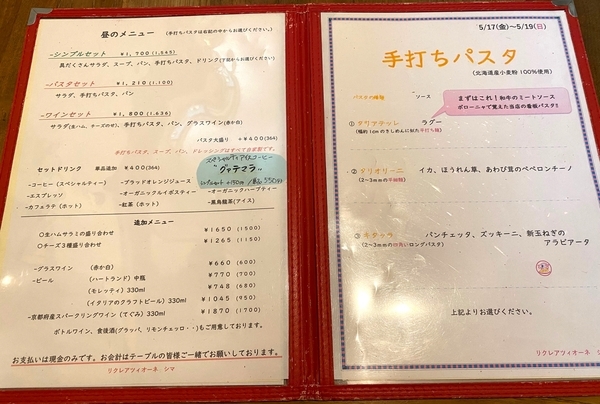 昼のメニュー (手打ちパスタは右記の中からお選びください。)
-シンプルセット ¥1,700(1.545)
具だくさんサラダ、スープ、パン、手打ちパスタ、ドリンク(下記からお選びください)
-パスタセット ¥1,210(1.100)
サラダ、手打ちパスタ、パン
-ワインセット ¥1,800(1.636)
サラダ(生ハム、チーズのせ)、手打ちパスタ、パン、グラスワイン(赤か白)
パスタ大盛り +¥400(364)
手打ちパスタ、スープ、パン、ドレッシングはすべて自家製です。
セットドリンク 単品追加 ¥400(364)
スペシャルティアイスコーヒー
"グァテマラ"
-コーヒー(スペシャルティー) -ブラッドオレンジジュース
-エスプレッソ -オーガニックルイボスティー -オーガニックハーブティー
-カフェラテ(ホット) -紅茶(ホット) -黒烏龍茶(アイス)
追加メニュー
〇生ハムサラミの盛り合わせ ¥1650(1500)
〇チーズ3種盛り合わせ ¥1265(1150)
-グラスワイン (赤か白) ¥660(600)
-ビール (ハートランド)中瓶 ¥770(700)
(モレッティ)330ml ¥748(680)
(イタリアのクラフトビール)330ml ¥1045(950)
-京都府産スパークリングワイン(てぐみ)330ml ¥1870(1700)
ボトルワイン、食後酒(グラッパ、リモンチェッロ・・)もご用意しております。
お支払いは現金のみです。お会計はテーブルの皆様ご一緒でお願いしております。
リクレアツィオーネ シマ
5/17(金)~5/19(日)
手打ちパスタ
(北海道産小麦粉 100%使用)
パスタの種類 ソース
まずはこれ!和牛のミートソース
ボローニャで覚えた当店の看板パスタ!!
① タリアテッレ ラグー
(幅約1cmのきしめんに似た平打ち麺)
② タリオリーニ イカ、ほうれん草、あわび茸のペペロンチーノ
(2~3mmの平細麺)
③ キタッラ パンチェッタ、ズッキーニ、新玉ねぎの
(2~3mmの四角いロングパスタ) アラビアータ
上記よりお選びください。
リクレアツィオーネ シマ